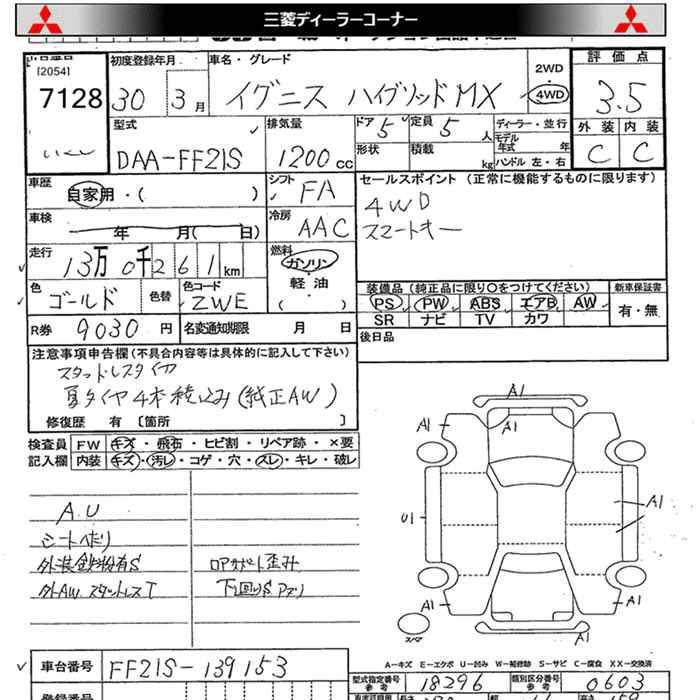 三菱ディーラーコーナー
[2054]
7128
初度登録年月
30 3月
車名・グレード
イグニス ハイブリッド MX
2WD
4WD
評価点
3.5
外装 内装
C C
型式
DAA-FF21S
排気量
1200cc
ドア 5
定員 5人
形状
積載 kg
ディーラー・並行
モデル年式 年
ハンドル 左・右
車歴
自家用・( )
シフト
FA
車検
年 月( 日)
冷房
AAC
セールスポイント (正常に機能するものに限ります)
4WD
スマートキー
走行
13万0千261km
燃料
ガソリン
軽油
・
( )
色
ゴールド
色替
色コード
ZWE
装備品(純正品に限り〇をつけてください)
PS PW ABS エアB AW
SR ナビ TV カワ
新車保証書
有・無
R券 9030円
名変通知期限 月 日
後日品
注意事項申告欄(不具合内容等は具体的に記入して下さい)
スタッドレスタイヤ
夏タイヤ4本積込み(純正AW)
修復歴 有 [箇所 ]
検査員 FW キズ・飛石・ヒビ割・リペア跡・×要
記入欄 内装 キズ・汚レ・コゲ・穴・スレ・キレ・破レ
A.U
シートへたり
外装鉄粉有S
外AW スタットレスT
ロアサポート歪み
下回りS アブリ
A1
A1
A1
A1
U1
A1
A1
A1
スペア
A-キズ E-エクボ U-凹み W-補修跡 S-サビ C-腐食 XX-交換済
車台番号 FF21S-139153
型式指定番号 参考 18296
類別区分番号 参考 0603
登録番号